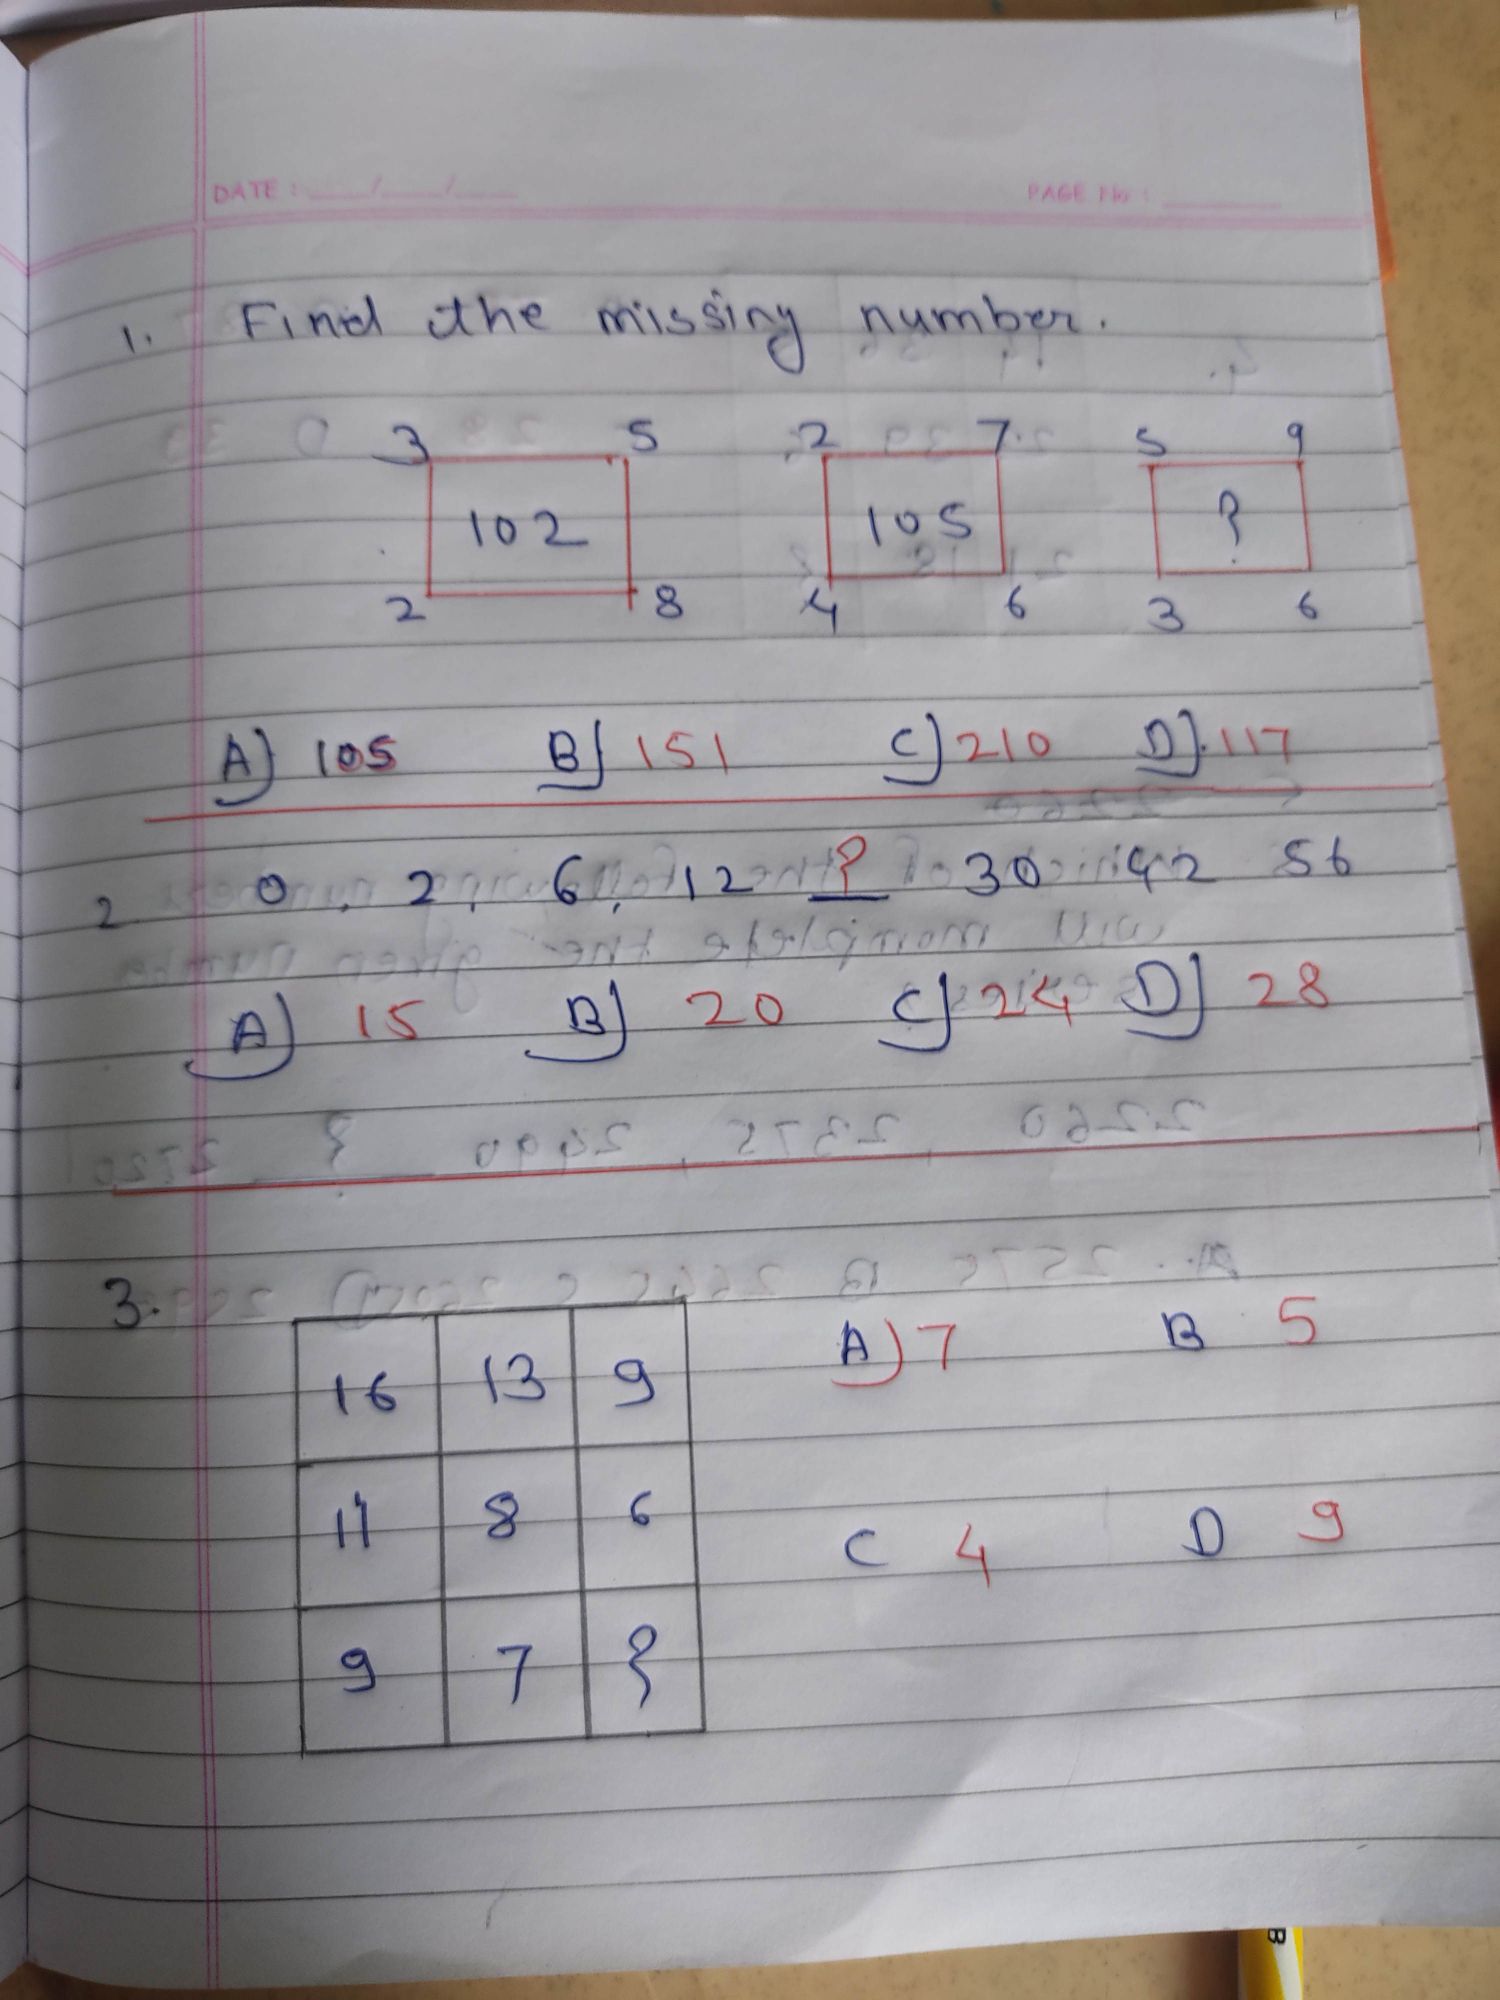 DATE : ___/___/___ PAGE No : ______
1. Find the missing number.
3 5 2 7 5 9
102 105 ?
2 8 4 6 3 6
A) 105 B) 151 C) 210 D) 117
2. 0, 2, 6, 12 ? 30 42 56
A) 15 B) 20 C) 24 D) 28
3.
16 13 9 A) 7 B 5
11 8 6 C 4 D 9
9 7 ?
B